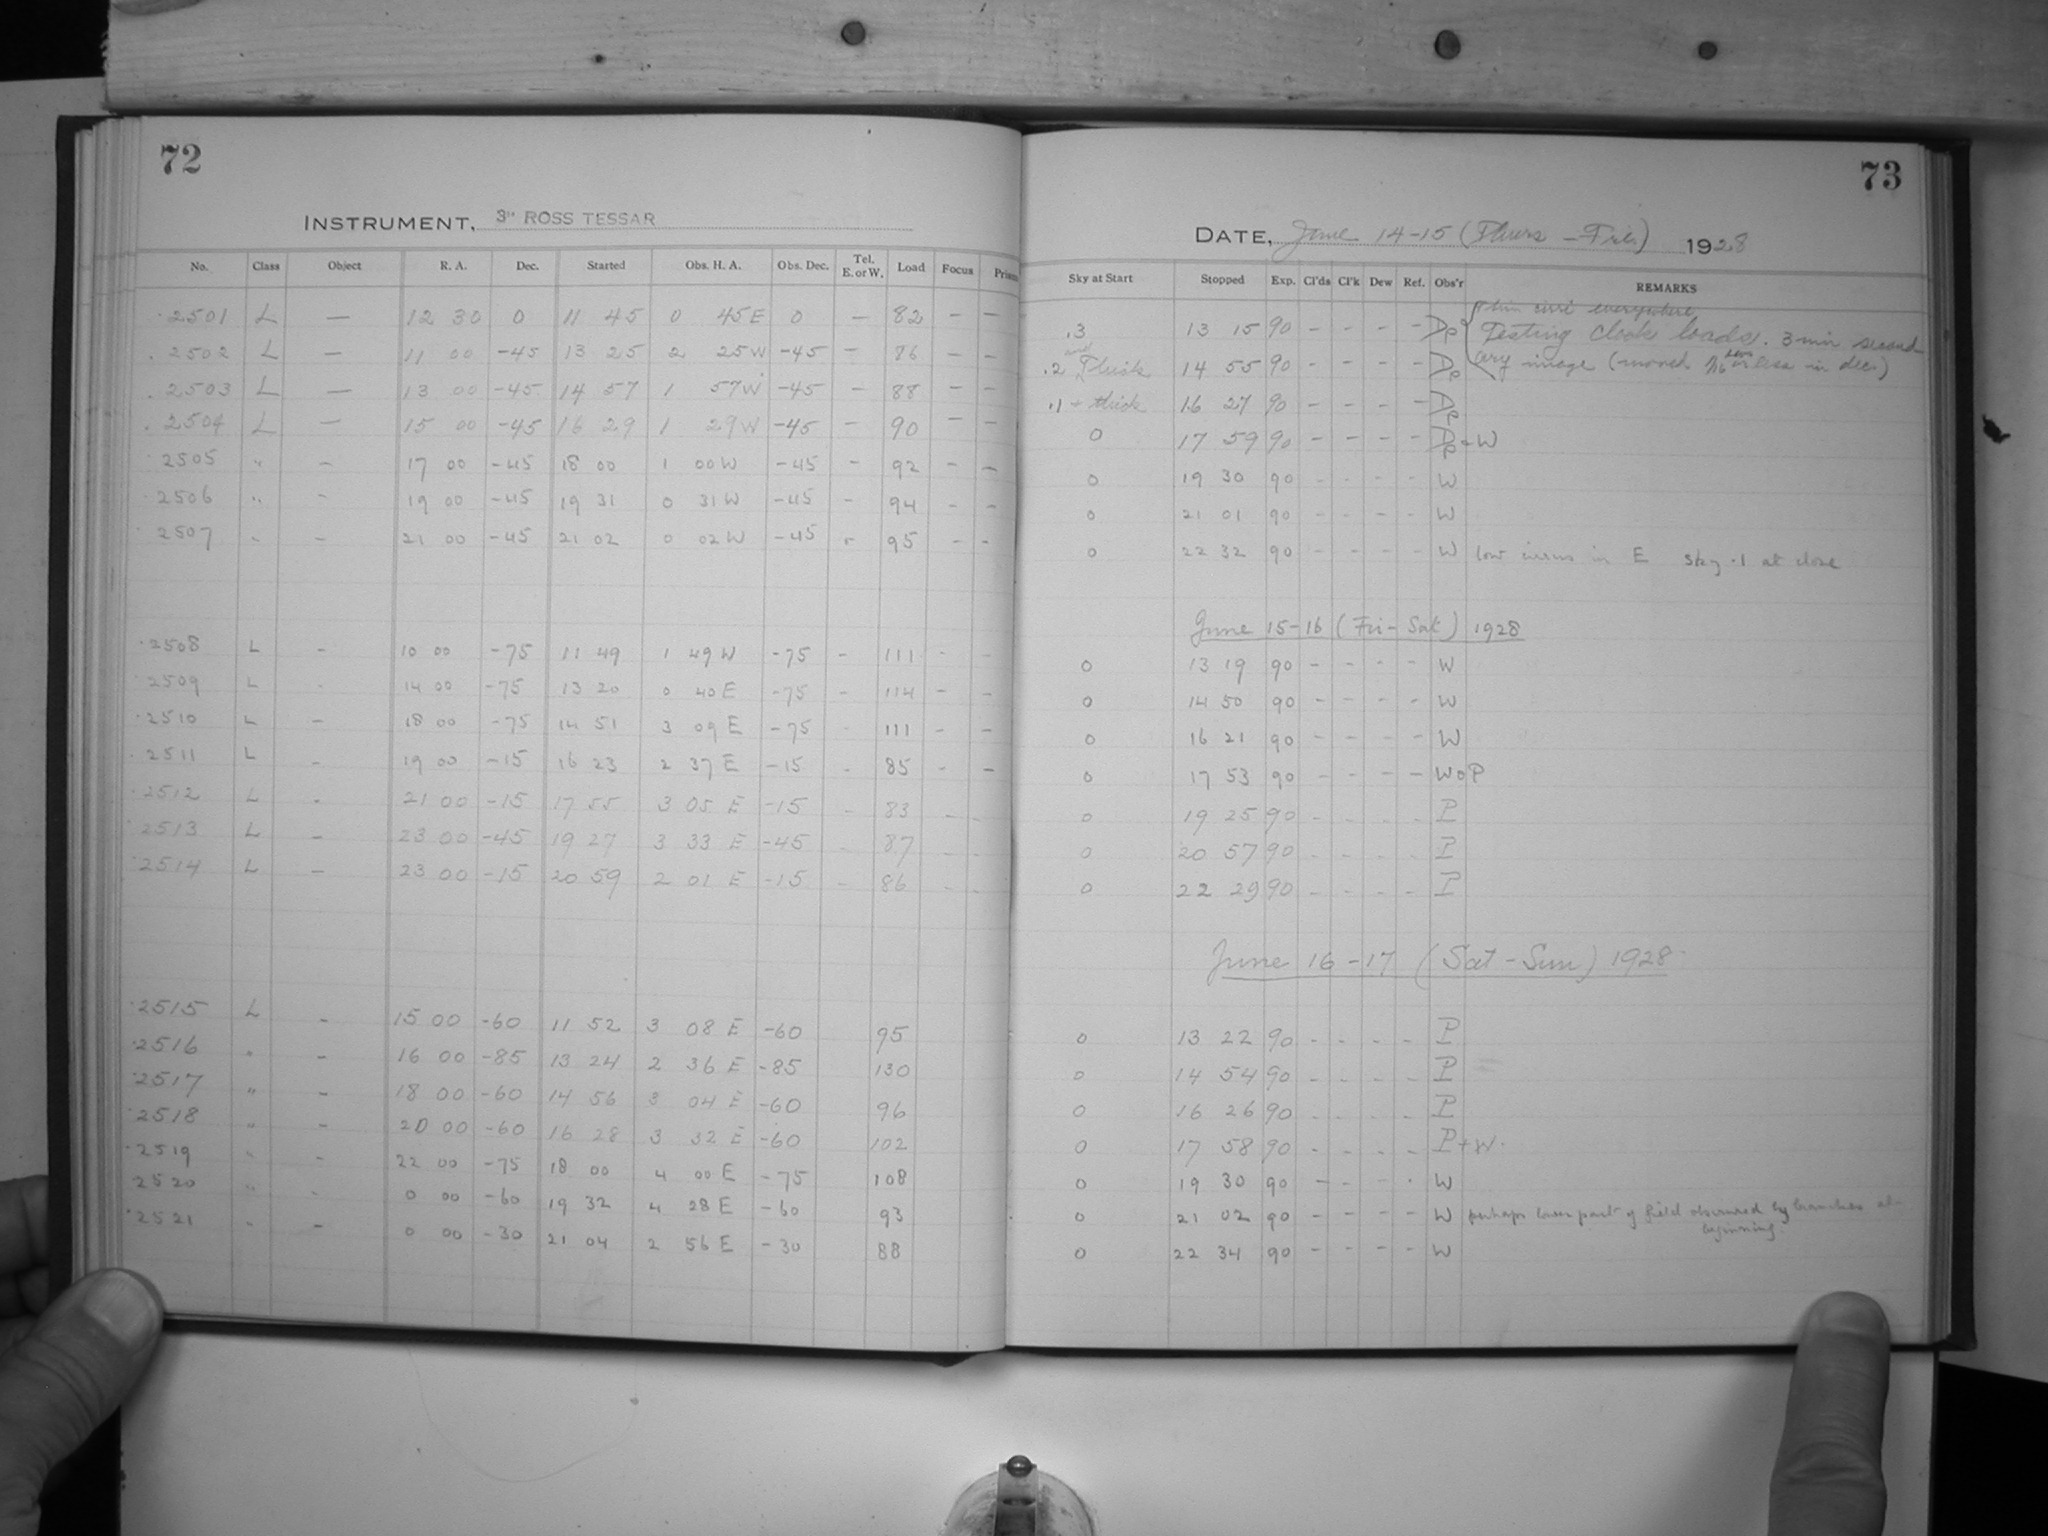 72
INSTRUMENT, 3" ROSS TESSAR
No. Class Object R. A. Dec. Started Obs. H. A. Obs. Dec. Tel. E. or W. Load Focus
2501 L — 12 30 0 11 45 0 45 E 0 — 82 — —
2502 L — 11 00 -45 13 25 2 25 W -45 — 86 — —
2503 L — 13 00 -45 14 57 1 57 W -45 — 88 — —
2504 L — 15 00 -45 16 29 1 29 W -45 — 90 — —
2505 " — 17 00 -45 18 00 1 00 W -45 — 92 — —
2506 " — 19 00 -45 19 31 0 31 W -45 — 94 — —
2507 " — 21 00 -45 21 02 0 02 W -45 - 95 - -
2508 L - 10 00 -75 11 49 1 49 W -75 - 111 - -
2509 L - 14 00 -75 13 20 0 40 E -75 - 114 - -
2510 L - 18 00 -75 14 51 3 09 E -75 - 111 - -
2511 L - 19 00 -15 16 23 2 37 E -15 - 85 - -
2512 L - 21 00 -15 17 55 3 05 E -15 - 83 - -
2513 L - 23 00 -45 19 27 3 33 E -45 - 87 - -
2514 L - 23 00 -15 20 59 2 01 E -15 - 86 - -
2515 L - 15 00 -60 11 52 3 08 E -60 95
2516 " - 16 00 -85 13 24 2 36 E -85 130
2517 " - 18 00 -60 14 56 3 04 E -60 96
2518 " - 20 00 -60 16 28 3 32 E -60 102
2519 " - 22 00 -75 18 00 4 00 E -75 108
2520 " - 0 00 -60 19 32 4 28 E -60 93
2521 " - 0 00 -30 21 04 2 56 E -30 88
73
DATE, June 14-15 (Thurs - Fri) 1928
Sky at Start Stopped Exp. Cl'ds Cl'k Dew Ref. Obs'r REMARKS
Thin cirri everywhere
.3 13 15 90 - - - - Dp Testing clock loads. 3 min second-
.2 and Thick 14 55 90 - - - - Dp ary image (moved or less in dec.)
.1 + thick 16 27 90 - - - - Dp
0 17 59 90 - - - - Dp + W
0 19 30 90 - - - - W
0 21 01 90 - - - - W
0 22 32 90 - - - - W low cirrus in E sky .1 at close
June 15-16 (Fri- Sat) 1928
0 13 19 90 - - - - W
0 14 50 90 - - - - W
0 16 21 90 - - - - W
0 17 53 90 - - - - W P
0 19 25 90 - - - - P
0 20 57 90 - - - - P
0 22 29 90 - - - - P
June 16-17 (Sat - Sun) 1928
0 13 22 90 - - - - P
0 14 54 90 - - - - P
0 16 26 90 - - - - P
0 17 58 90 - - - - P + W.
0 19 30 90 - - - - W
0 21 02 90 - - - - W perhaps lower part of field obscured by branches at
beginning.
0 22 34 90 - - - - W